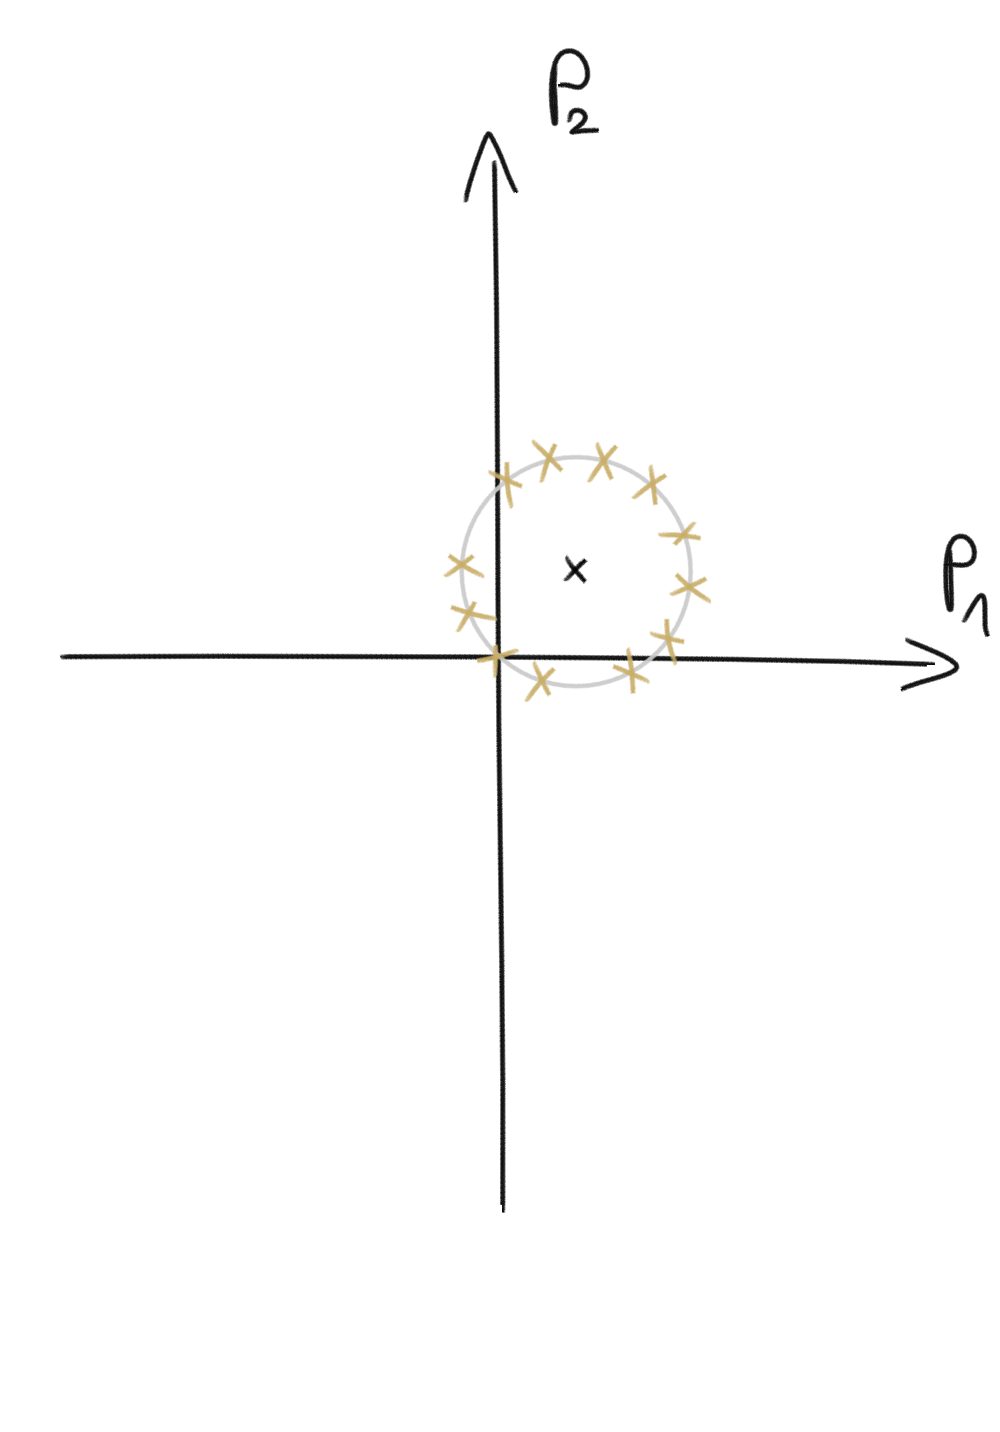 P₂
P₁